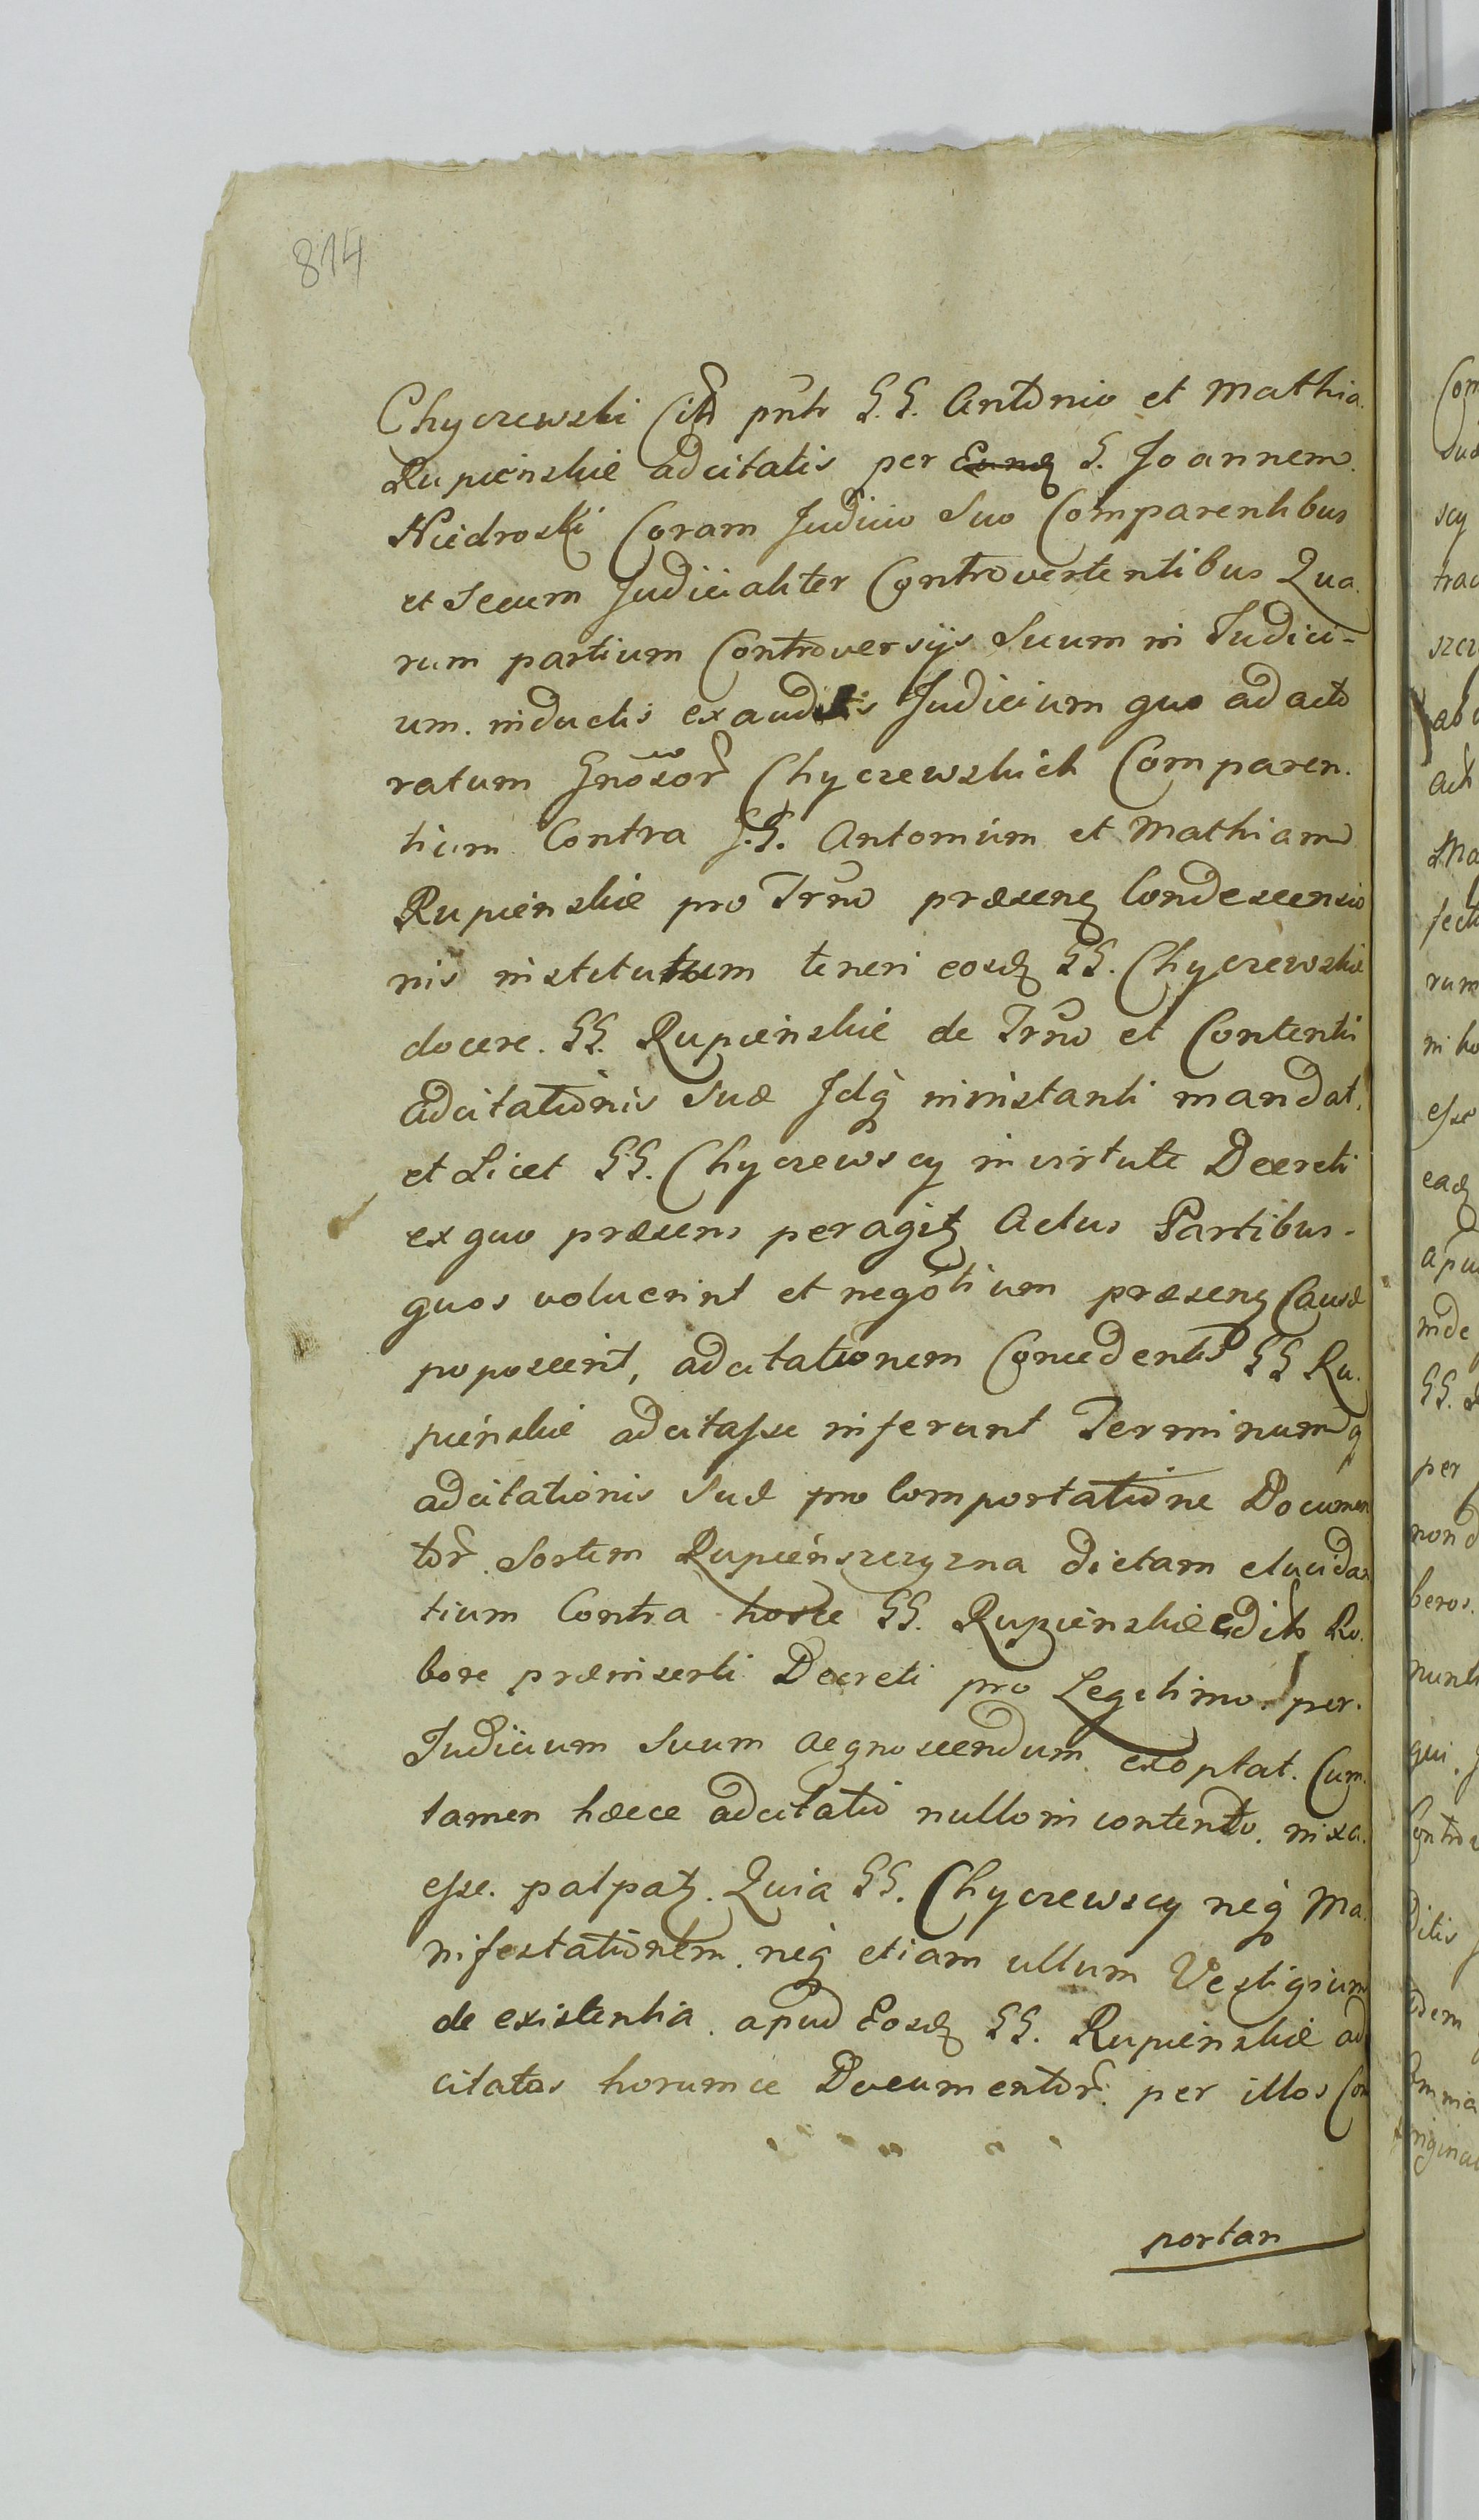 814
Chyczewski Citt pntr G.G. Antonio et Mathia
Rupienskie adcitatis per Eund G. Joannem
Niedroski Coram Judicio Suo Comparentibus
et Secum Judicialiter Controvertentibus Qua
rum partium Controversijs Suum in Judici-
um inductis exauditis Judicium quo ad acto
ratum Gnosor Chyczewskich Comparen
tium Contra G.G. Antonium et Mathiam
Rupienskie pro Trno præsenz Condescensio
nis institutum teneri eosdz GG. Chyczewskie
docere GG. Rupienskie de Trno et Contenti
adcitationis Suæ Idq ininstanti mandat,
et Licet GG. Chyczewscy in virtute Decreti
ex quo præsens peragitz Actus Partibus
quos voluerint et negotium præsenz Causæ
poposcerit, adcitationem Concedentis GG Ru
pienskie adcitasse inferunt Terminumq
adcitationis Suæ pro Comportatione Documen
tor Sortem Rupienszczyzna dictam elucidan
tium Contra hosce GG. Rupienskie edito Ro
bore præinserti Decreti pro Legitimo per
Judicium Suum Agnoscendum exoptat. Cum
tamen hæce adcitatio nullo in contento nixa
esse palpatz. Quia GG. Chyczewscy neq Ma
nifestationem neq etiam ullum Vestigium
de existentia apud Eosdz GG. Rupienskie ad
citatos horumce Documentor per illos Com
portan